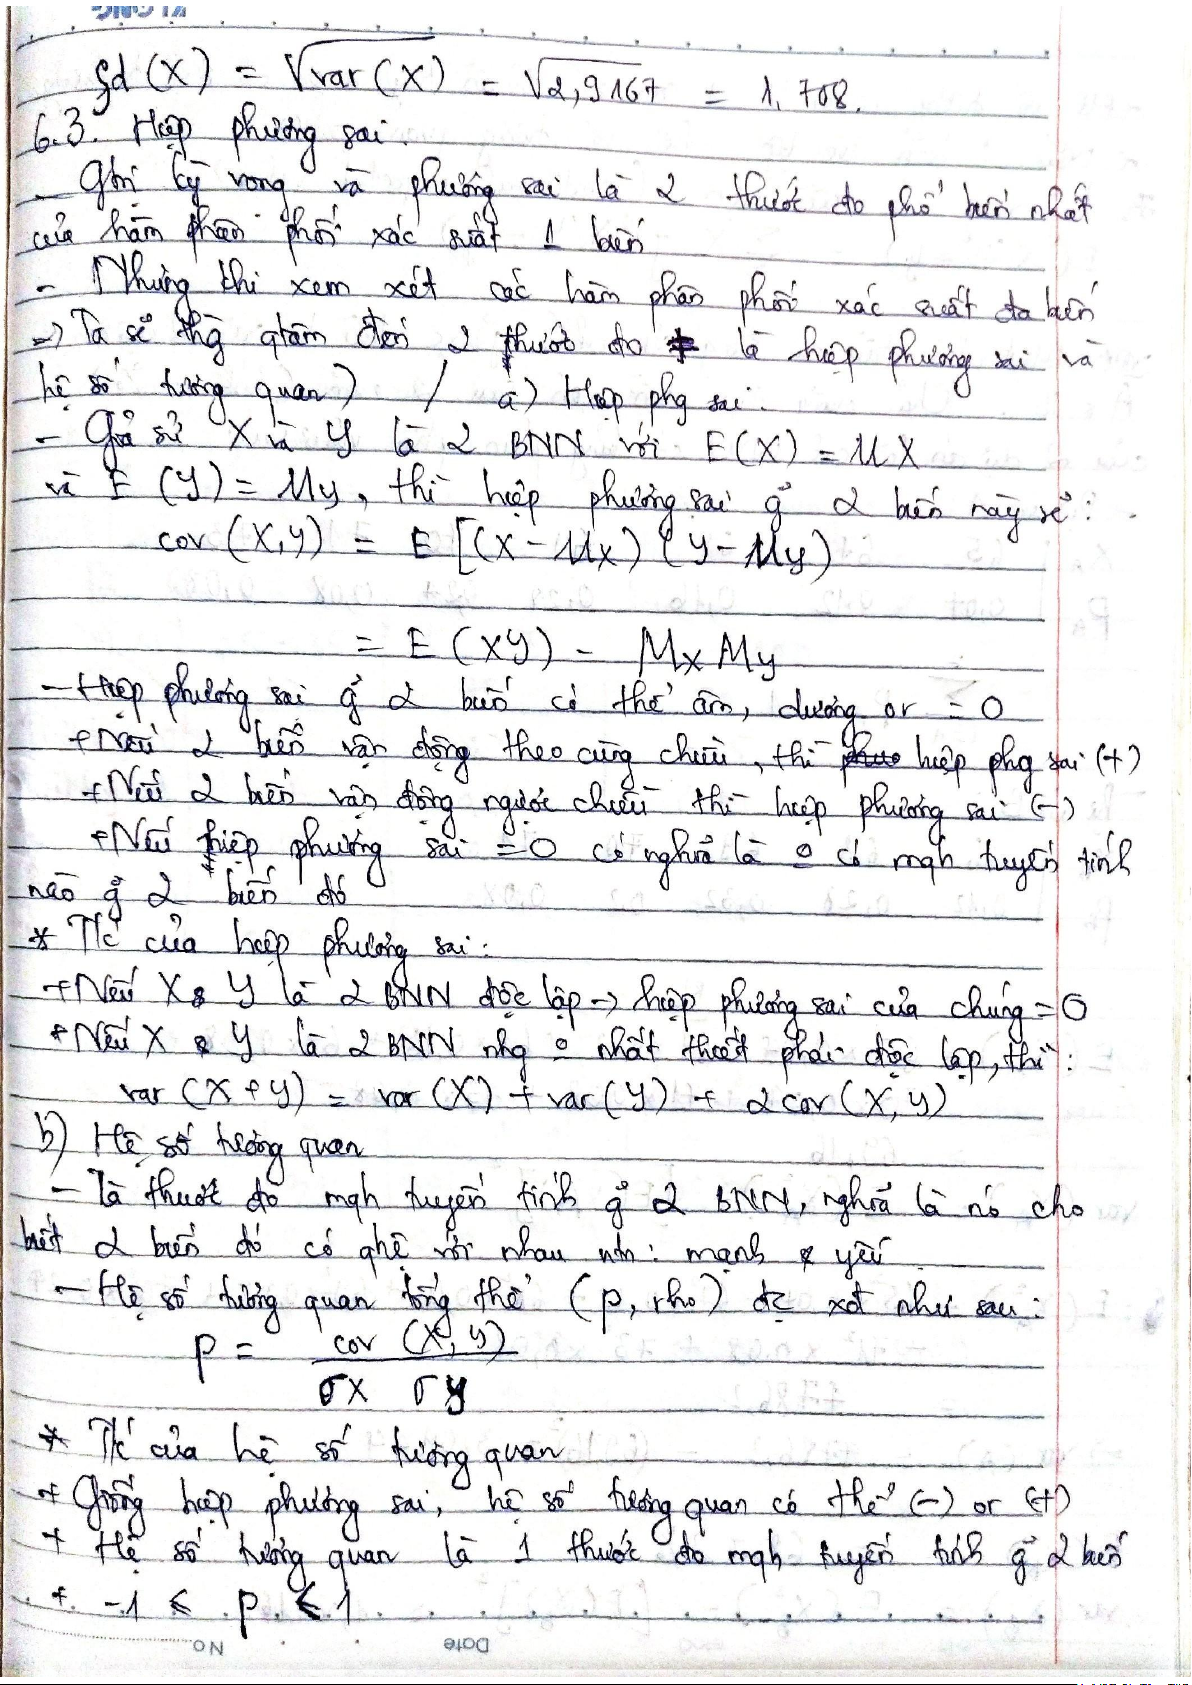 sd(X) = √var(X) = √2,9167 = 1,708.
6.3. Hiệp phương sai.
- Gtrị kỳ vọng và phương sai là 2 thước đo phổ biến nhất
của hàm phân phối xác suất 1 biến
- Nhưng khi xem xét các hàm phân phối xác suất đa biến
=> Ta sẽ qtâm đến 2 thước đo là hiệp phương sai và
hệ số tương quan) / a) Hiệp phg sai.
- Giả sử X và Y là 2 BNN với E(X) = μX
và E(Y) = μy, thì hiệp phương sai g̉ 2 biến này sẽ:
cov(X,y) = E[(X - μx)(y - μy)
= E(XY) - μx μy
- Hiệp phương sai g̉ 2 biến có thể âm, dương or = 0
+ Nếu 2 biến vận động theo cùng chiều, thì hiệp phg sai (+)
+ Nếu 2 biến vận động ngược chiều thì hiệp phương sai (-)
+ Nếu hiệp phương sai = 0 có nghĩa là o có mqh tuyến tính
nào g̉ 2 biến đó
* T/c của hiệp phương sai:
+ Nếu X & Y là 2 BNN độc lập -> hiệp phương sai của chúng = 0
+ Nếu X & Y là 2 BNN nhg o nhất thiết phải độc lập, thì:
var(X+y) = var(X) + var(Y) + 2cov(X,y)
b) Hệ số tương quan
- Là thước đo mqh tuyến tính g̉ 2 BNN, nghĩa là nó cho
biết 2 biến đó có qhệ với nhau ntn: mạnh & yếu
- Hệ số tương quan tổng thể (p, rho) đc xđ như sau:
p = cov(X,y)
σX σy
* T/c của hệ số tương quan
+ Giống hiệp phương sai, hệ số tương quan có thể (-) or (+)
+ Hệ số tương quan là 1 thước đo mqh tuyến tính g̉ 2 biến
+ -1 ≤ p ≤ 1
No Date